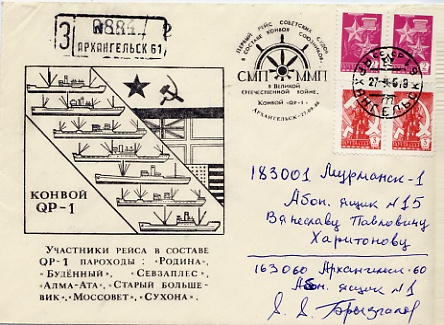 З № 884
АРХАНГЕЛЬСК 61
ПЕРВЫЙ РЕЙС СОВЕТСКИХ СУДОВ
В СОСТАВЕ КОНВОЯ СОЮЗНИКОВ
СМП ММП
В ВЕЛИКОЙ
ОТЕЧЕСТВЕННОЙ ВОЙНЕ.
КОНВОЙ "QP-1"
АРХАНГЕЛЬСК-27-09-86
КОНВОЙ
QP-1
УЧАСТНИКИ РЕЙСА В СОСТАВЕ
QP-1 ПАРОХОДЫ: «РОДИНА»,
«БУДЁННЫЙ», «СЕВЗАПЛЕС»,
«АЛМА-АТА», «СТАРЫЙ БОЛЬШЕ-
ВИК», «МОССОВЕТ», «СУХОНА».
183001 Мурманск-1
Абон. ящик №15
Вячеславу Павловичу
Харитонову
163060 Архангельск-60
Абон. ящик №1